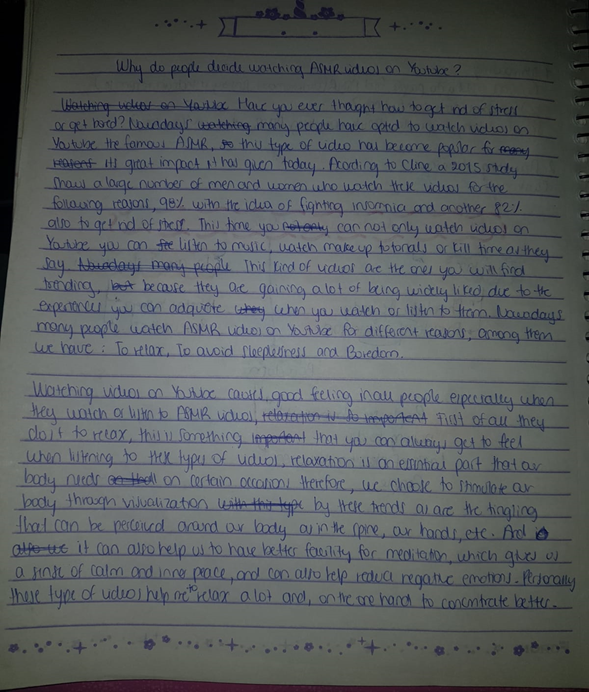 Why do people decide watching ASMR videos on Youtube?
Watching videos on Youtube Have you ever thought how to get rid of stress
or get bored? Nowadays watching many people have opted to watch videos on
Youtube the famous ASMR, so this type of video has become popular for many
reasons its great impact it has given today. According to Cline a 2015 study
shows a large number of men and women who watch these videos for the
following reasons, 98% with the idea of fighting insomnia and another 82%
also to get rid of stress. This time you not only can not only watch videos on
Youtube you can listen to music, watch make up tutorials or kill time as they
say Nowadays many people This kind of videos are the ones you will find
trending, but because they are gaining a lot of being widely liked, due to the
experiences you can adquote why when you watch or listen to them. Nowadays
many people watch ASMR videos on Youtube for different reasons, among them
we have: To relax, To avoid sleeplessness and Boredom.
Watching videos on Youtube causes good feeling in all people especially when
they watch or listen to ASMR videos, relaxation is so important First of all they
do it to relax, this is something important that you can always get to feel
when listening to these types of videos, relaxation is an essential part that our
body needs on certain occations therefore, we choose to stimulate our
body through visualization with this type by these trends as are the tingling
that can be perceived around our body as in the spine, our hands, etc. And
also we it can also help us to have better facility for meditation, which gives us
a sense of calm and inner peace, and can also help reduce negative emotions. Personally
these type of videos help me to relax a lot and, on the one hand to concentrate better.